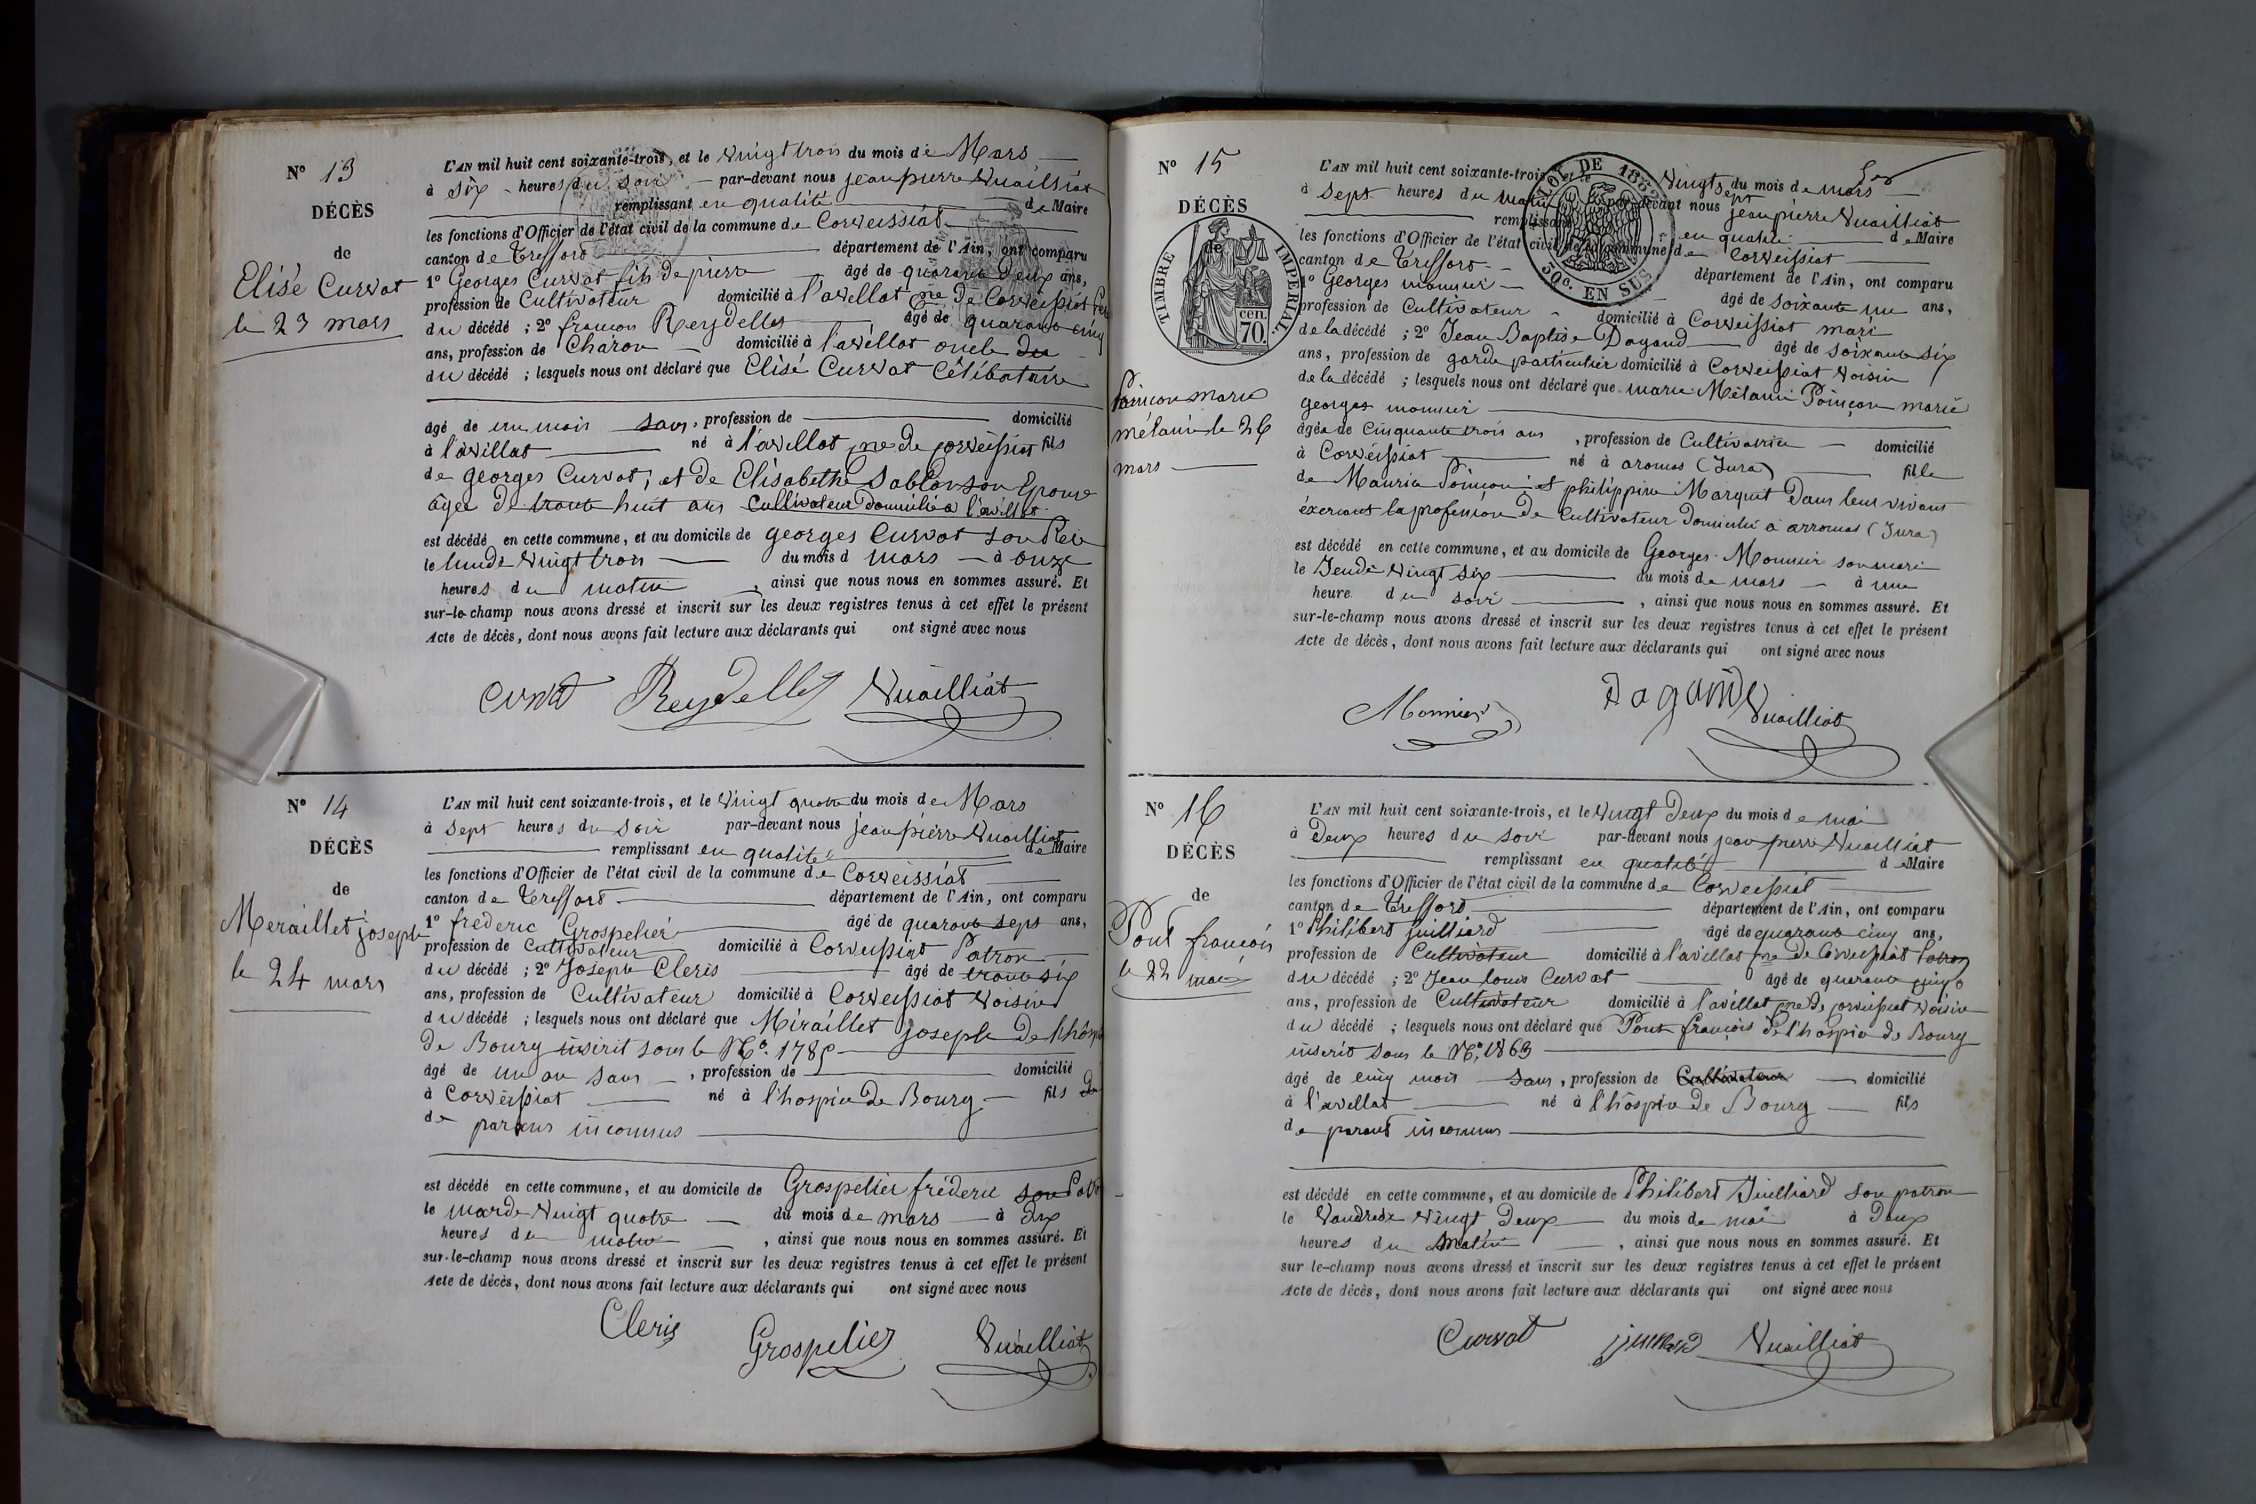 N° 13
DÉCÈS
de
Elisé Curvat
le 23 mars
L'AN mil huit cent soixante-trois, et le vingt trois du mois de Mars
à six heures du soir par-devant nous jean pierre Vuailliat
remplissant en qualité de Maire
les fonctions d'Officier de l'état civil de la commune de Corveissiat
canton de Treffort département de l'Ain, ont comparu
1° Georges Curvat fils de pierre âgé de quarante deux ans,
profession de Cultivateur domicilié à l'avellat Cne de Corveissiat Père
du décédé ; 2° françois Reydellet âgé de quarante cinq
ans, profession de Charon domicilié à l'avellat oncle
du décédé ; lesquels nous ont déclaré que Elisé Curvat Célibataire
âgé de un mois sans, profession de domicilié
à l'avellat né à l'avellat cne de corveissiat fils
de georges Curvat, et de Elisabethe Sablon son Epouse
âgée de trante huit ans Cultivateur domicilié à l'avellat
est décédé en cette commune, et au domicile de georges Curvat son Père
le lundi vingt trois du mois d mars à onze
heures du matin, ainsi que nous nous en sommes assuré. Et
sur-le-champ nous avons dressé et inscrit sur les deux registres tenus à cet effet le présent
Acte de décès, dont nous avons fait lecture aux déclarants qui ont signé avec nous
Curvat Reydellet Vuailliat
N° 14
DÉCÈS
de
Meraillet joseph
le 24 mars
L'AN mil huit cent soixante-trois, et le vingt quatre du mois de Mars
à sept heures du soir par-devant nous jean pierre Vuailliat
remplissant en qualité de Maire
les fonctions d'Officier de l'état civil de la commune de Corveissiat
canton de Treffort département de l'Ain, ont comparu
1° frédéric Grospelier âgé de quarante sept ans,
profession de Cultivateur domicilié à Corveissiat Patron
du décédé ; 2° Joseph Cleris âgé de trante six
ans, profession de Cultivateur domicilié à Corveissiat voisin
du décédé ; lesquels nous ont déclaré que Méraillet joseph de l'hospice
de Bourg inscrit sous le N° 178
âgé de un an sans, profession de domicilié
à Corveissiat né à l'hospice de Bourg fils
de parens inconnus
est décédé en cette commune, et au domicile de Grospelier frédéric son Patron
le mardi vingt quatre du mois de mars à dix
heures du matin, ainsi que nous nous en sommes assuré. Et
sur-le-champ nous avons dressé et inscrit sur les deux registres tenus à cet effet le présent
Acte de décès, dont nous avons fait lecture aux déclarants qui ont signé avec nous
Cleris Grospelier Vuailliat
N° 15
DÉCÈS
de
TIMBRE IMPÉRIAL.
cen.
70.
Poinçon marie
mélanie le 26
mars
LOI DE 1862
50c. EN SUS
L'AN mil huit cent soixante-trois, et le vingt sept du mois de mars
à sept heures du matin par-devant nous jean pierre Vuailliat
remplissant en qualité de Maire
les fonctions d'Officier de l'état civil de la commune de Corveissiat
canton de Treffort département de l'Ain, ont comparu
1° Georges monnier âgé de soixante un ans,
profession de Cultivateur domicilié à Corveissiat mari
de la décédé ; 2° Jean Baptiste Dagand âgé de soixante six
ans, profession de garde particulier domicilié à Corveissiat voisin
de la décédé ; lesquels nous ont déclaré que marie Mélanie Poinçon marié
georges monnier
âgée de cinquante trois ans, profession de Cultivatrice domicilié
à Corveissiat né à aromas (Jura) fille
de Maurice Poinçon et philippine Marquet dans leur vivant
éxercant la profession de Cultivateur domicilié à arromas (Jura)
est décédé en cette commune, et au domicile de Georges Monnier son mari
le Jeudi vingt six du mois de mars à une
heure du soir, ainsi que nous nous en sommes assuré. Et
sur-le-champ nous avons dressé et inscrit sur les deux registres tenus à cet effet le présent
Acte de décès, dont nous avons fait lecture aux déclarants qui ont signé avec nous
Monnier Dagand Vuailliat
N° 16
DÉCÈS
de
Pont francois
le 22 mai
L'AN mil huit cent soixante-trois, et le vingt deux du mois de mai
à deux heures du soir par-devant nous jean pierre Vuailliat
remplissant en qualité de Maire
les fonctions d'Officier de l'état civil de la commune de Corveissiat
canton de Treffort département de l'Ain, ont comparu
1° Philibert juilliard âgé de quarante cinq ans,
profession de Cultivateur domicilié à l'avellat cne de Corveissiat Patron
du décédé ; 2° Jean louis Curvat âgé de quarante cinq
ans, profession de Cultivateur domicilié à l'avellat cne de corveissiat voisin
du décédé ; lesquels nous ont déclaré que Pont françois de l'hospice de Bourg
inscrit sous le N° 1863
âgé de cinq mois sans, profession de Cultivateur domicilié
à l'avellat né à l'hospice de Bourg fils
de parens inconnus
est décédé en cette commune, et au domicile de Philibert Juilliard son patron
le Vandredi vingt deux du mois de mai à deux
heures du matin, ainsi que nous nous en sommes assuré. Et
sur le-champ nous avons dressé et inscrit sur les deux registres tenus à cet effet le présent
Acte de décès, dont nous avons fait lecture aux déclarants qui ont signé avec nous
Curvat juilliard Vuailliat